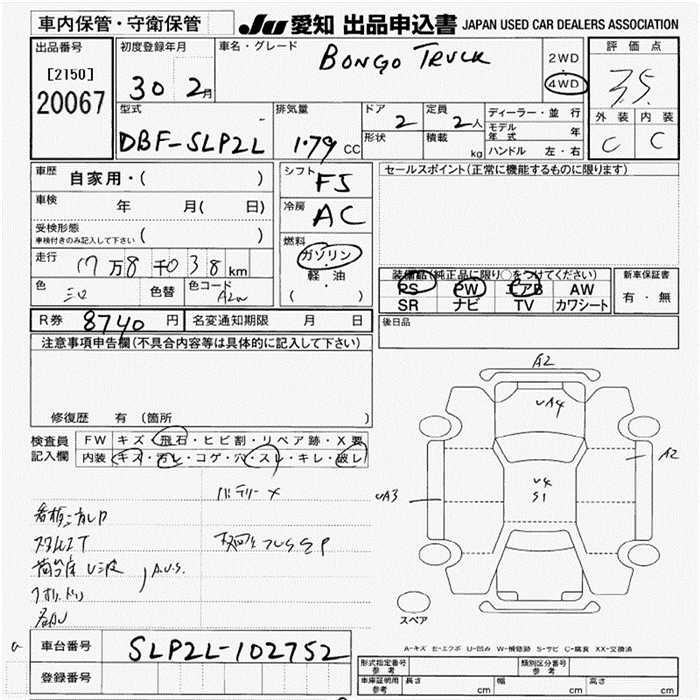 車内保管・守衛保管
JU 愛知 出品申込書 JAPAN USED CAR DEALERS ASSOCIATION
出品番号
[2150]
20067
初度登録年月
30 2月
車名・グレード
BONGO TRUCK
2WD
4WD
評価点
3.5
外装 内装
C C
型式
DBF-SLP2L
排気量
1.79 CC
ドア
2
定員
2人
形状
積載
kg
ディーラー・並行
モデル年式 年
ハンドル 左・右
車歴
自家用・( )
車検
年 月( 日)
受検形態
車検付きのみ記入して下さい ( )
走行
17万8千038km
色
色替
色コード
シフト
F5
冷房
AC
燃料
ガソリン
軽・油
( )
セールスポイント(正常に機能するものに限ります)
装備品(純正品に限り○をつけてください)
PS PW エアB AW
SR ナビ TV カワシート
新車保証書
有・無
R券 8740円
名変通知期限 月 日
後日品
注意事項申告欄(不具合内容等は具体的に記入して下さい)
修復歴 有 (箇所
検査員記入欄
FW キズ・飛石・ヒビ割・リペア跡・X要
内装 キズ・汚レ・コゲ・穴・スレ・キレ・破レ
バッテリー
A2
UA4
A2
U4
S1
UA3
スペア
A-キズ E-エクボ U-凹み W-補修跡 S-サビ C-腐食 XX-交換済
車台番号
SLP2L-102752
登録番号
型式指定番号 参考
類別区分番号 参考
車庫証明用 参考
長さ cm
幅 cm
高さ cm